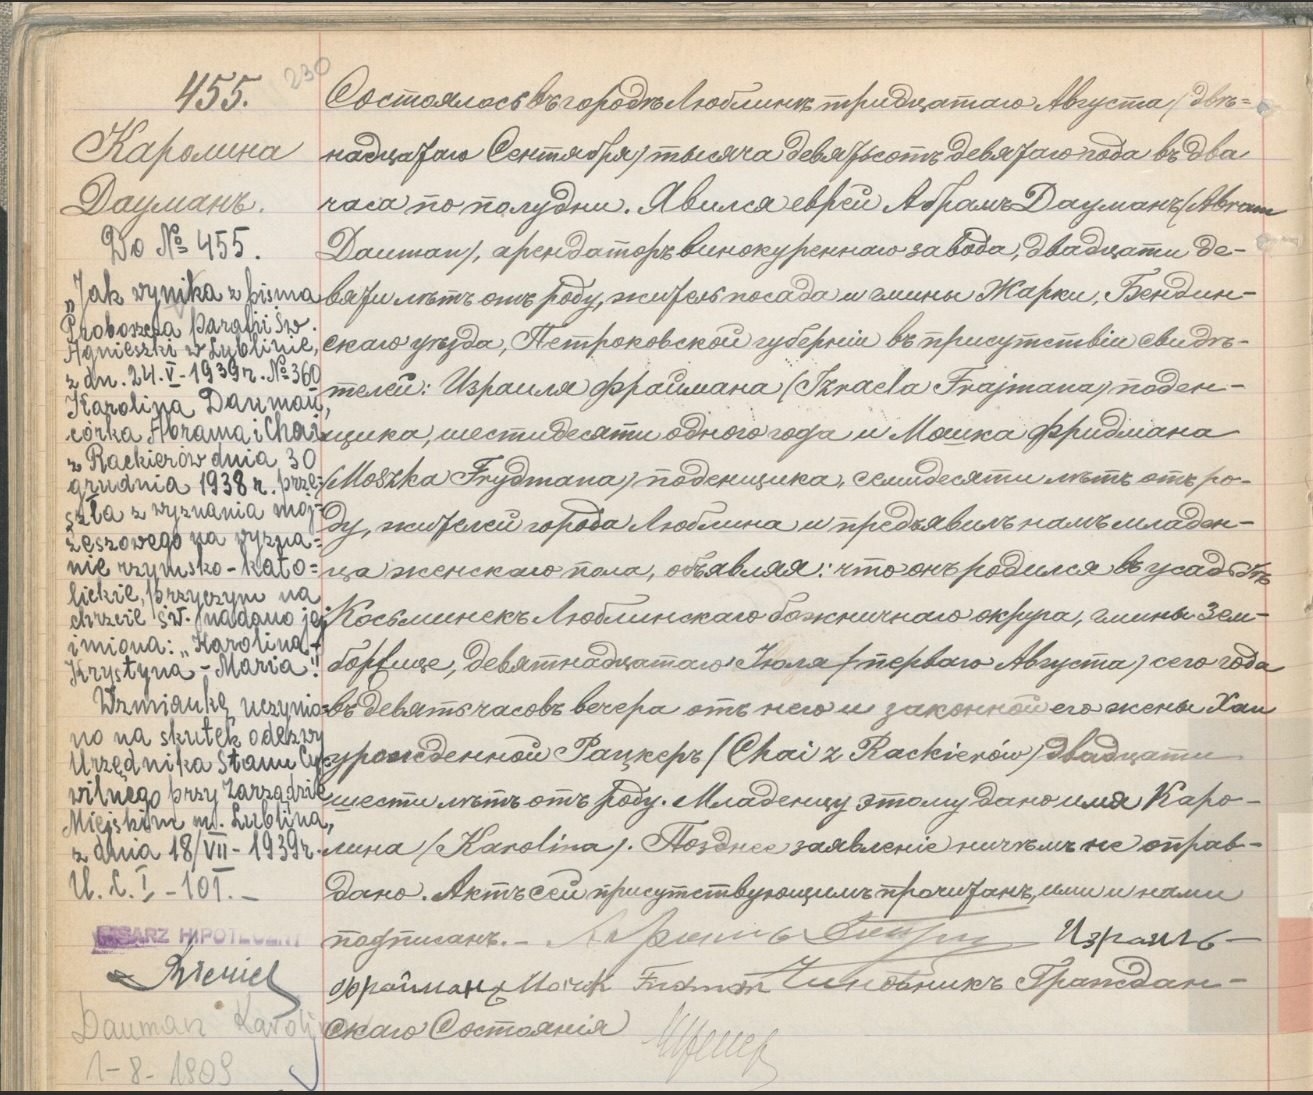 455.
230
Каролина
Дауманъ.
Do № 455.
„Jak wynika z pisma
Proboszcza parafii Św.
Agnieszki w Lublinie,
z dn. 24.V-1939 r. № 360
Karolina Dauman,
córka Abrama i Chai
z Rackierów dnia 30
grudnia 1938 r. prze-
szła z wyznania moj-
żeszowego na wyzna-
nie rzymsko-kato-
lickie, przyczym na
chrzcie św. nadano jej
imiona: „Karolina-
Krystyna-Maria".
Wzmiankę uczynio-
no na skutek odezwy
Urzędnika Stanu Cy-
wilnego przy Zarządzie
Miejskim m. Lublina,
z dnia 18/VII-1939 r.
U. C. I-101.-
PISARZ HIPOTECZNY
Dauman Karolina
1-8-1909
Состоялось въ городѣ Люблинѣ тридцатаго Августа /двѣ-
надцатаго Сентября/ тысяча девятьсотъ девятаго года въ два
часа по полудни. Явился еврей Абрамъ Дауманъ /Abram
Dauman/, арендаторъ винокуреннаго завода, двадцати де-
вяти лѣтъ отъ роду, житель посада и гмины Жарки, Бендин-
скаго уѣзда, Петроковской губерніи въ присутствіи свидѣ-
телей: Израиля Фраймана /Izraela Frajmana/ поден-
щика, шестидесяти одного года и Мошка Фридмана
/Moszka Frydmana/ поденщика, семидесяти лѣтъ отъ ро-
ду, жителей города Люблина и предъявилъ намъ младен-
ца женскаго пола, объявляя: что онъ родился въ усадьбѣ
Косьминекъ Люблинскаго божничнаго округа, гмины Зем-
боржице, девятнадцатаго Іюля /перваго Августа/ сего года
въ девять часовъ вечера отъ него и законной его жены Хаи
урожденной Рацкеръ /Chai z Rackierów/ двадцати
шести лѣтъ отъ роду. Младенцу этому дано имя Каро-
лина /Karolina/. Позднее заявленіе ничѣмъ не оправ-
дано. Актъ сей присутствующимъ прочитанъ, ими и нами
подписанъ.- Израиль
Фрайманъ Чиновникъ Граждан-
скаго Состоянія